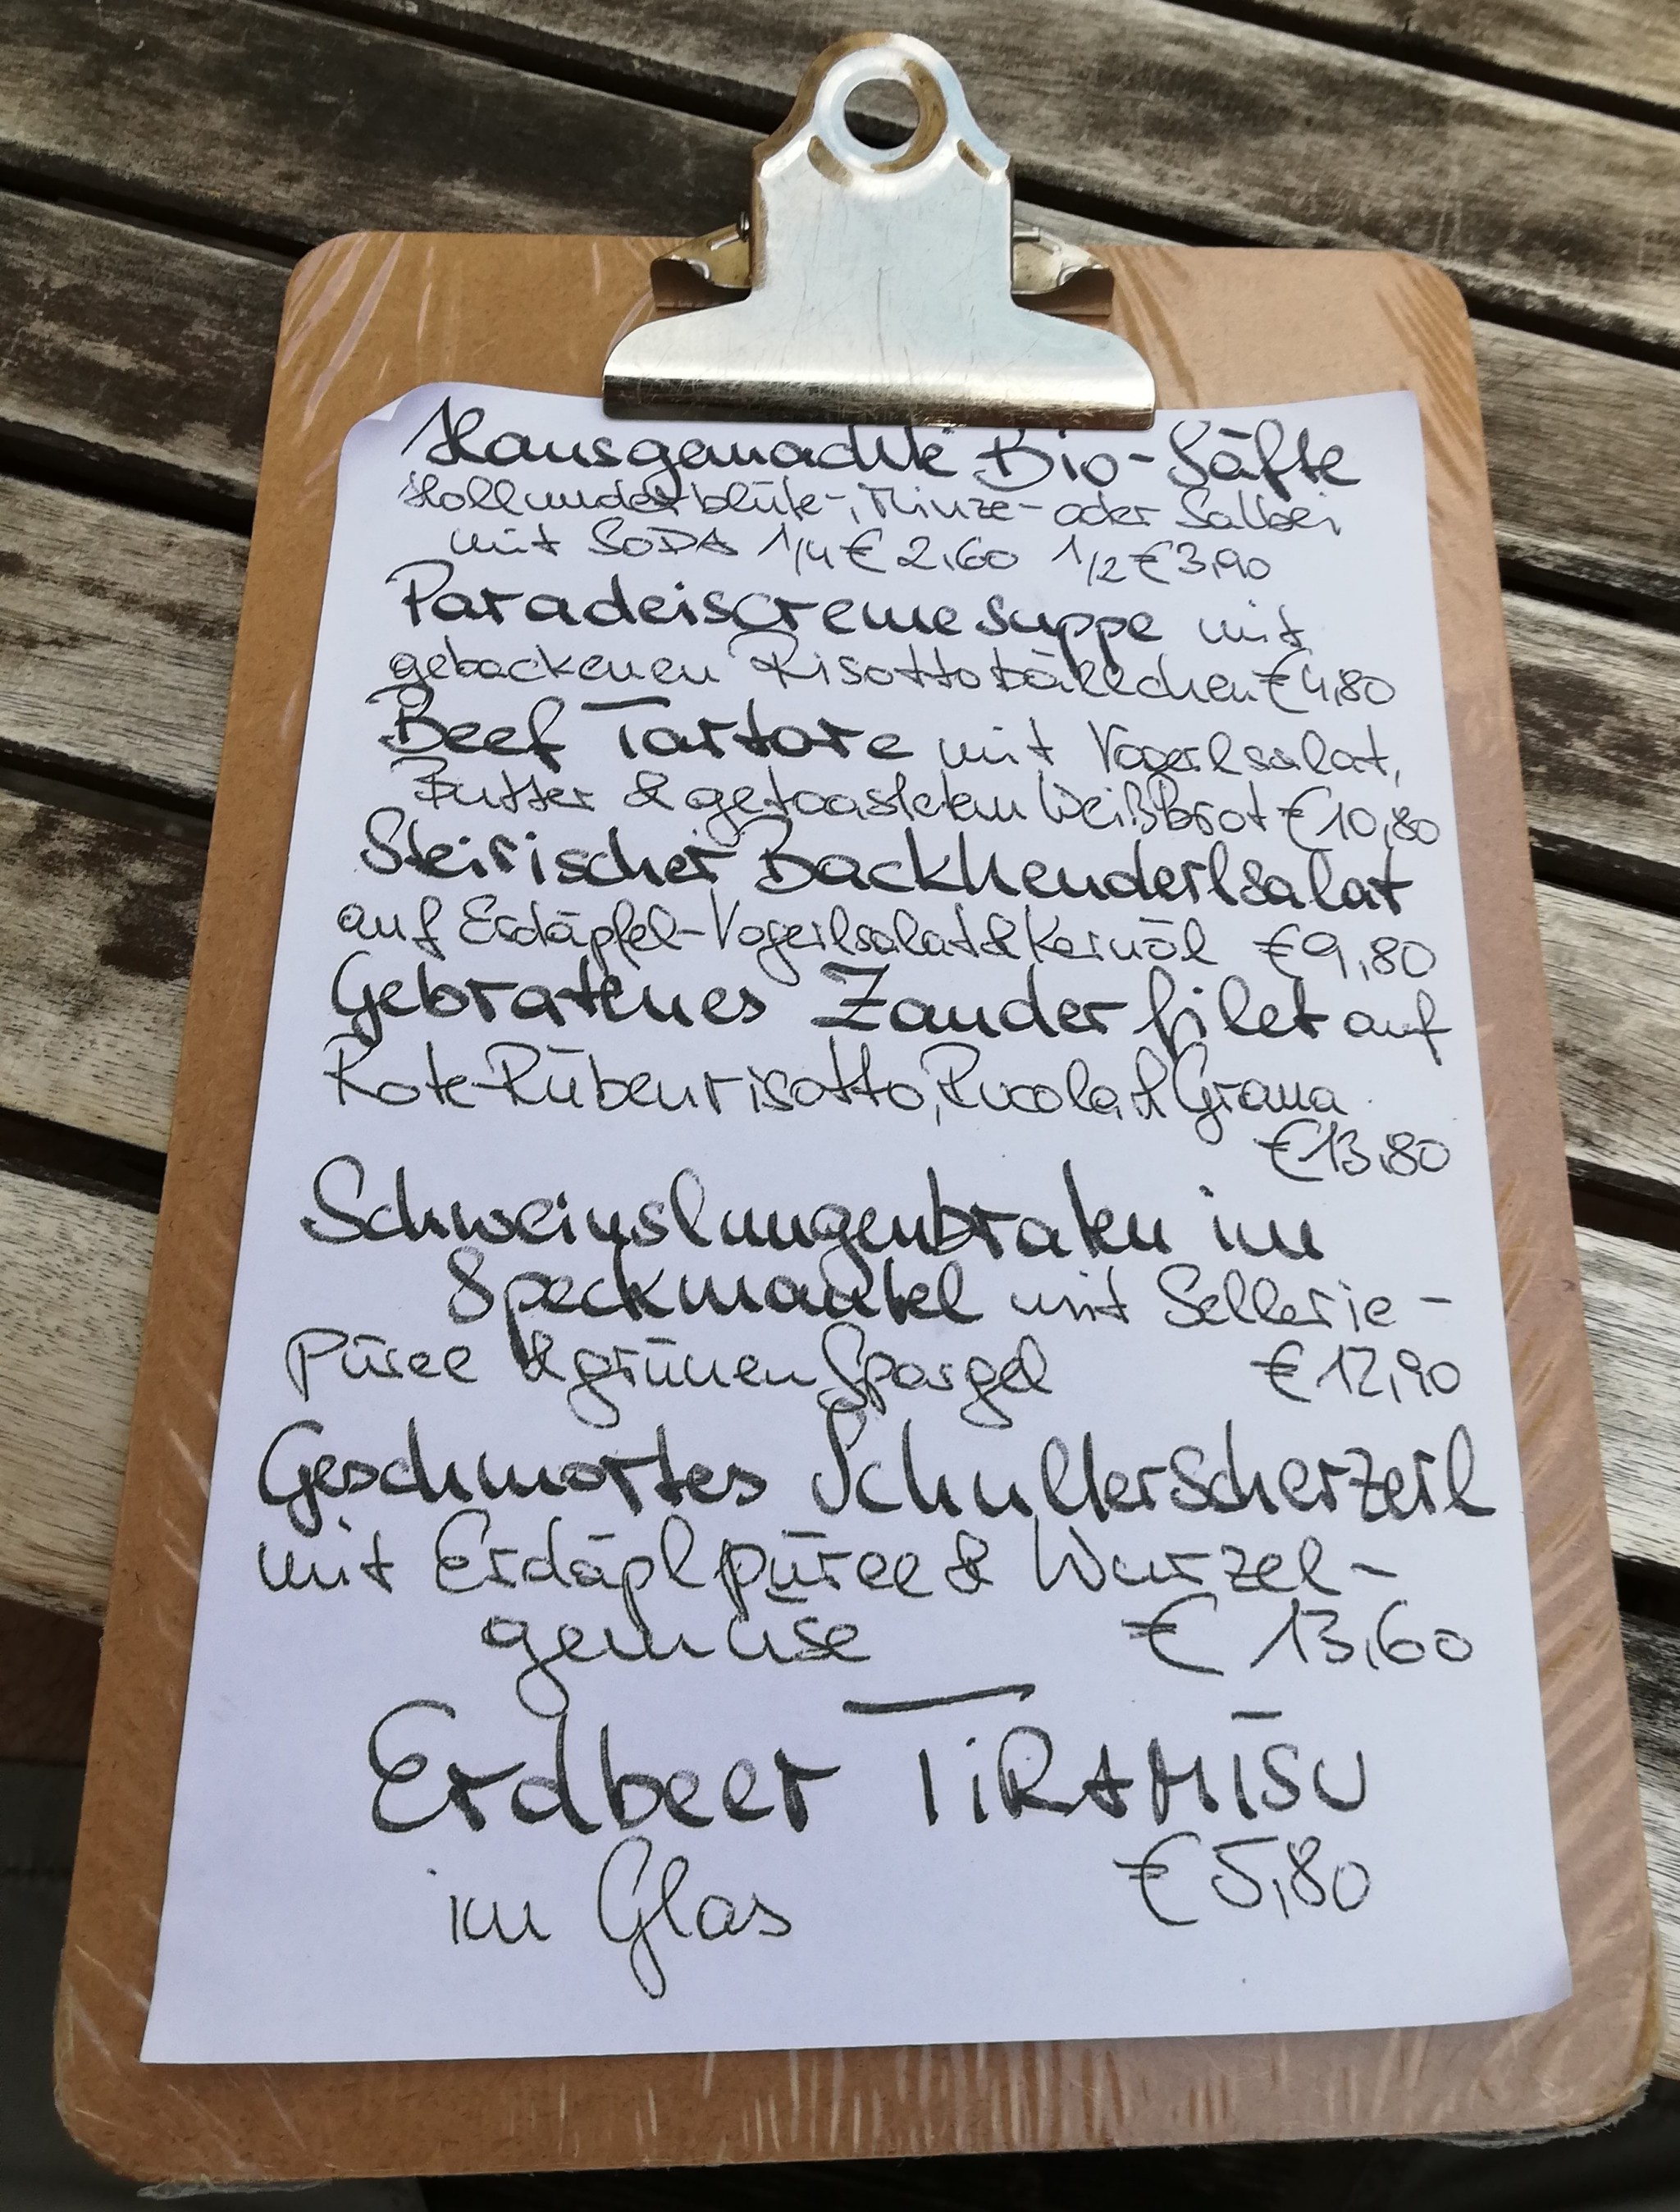 Hausgemachte Bio-Säfte
Hollunderblüte-, Minze- oder Salbei
mit SODA 1/4 € 2,60 1/2 € 3,90
Paradeiscremesuppe mit
gebackenen Risottobällchen € 4,80
Beef Tartare mit Vogerlsalat,
Butter & getoastetem Weißbrot € 10,80
Steirischer Backhenderlsalat
auf Erdäpfel-Vogerlsalat & Kernöl € 9,80
Gebratenes Zanderfilet auf
Rote-Rübenrisotto, Rucola & Grana
€ 13,80
Schweinslungenbraten im
Speckmantel mit Sellerie-
püree & grünen Spargel € 12,90
Geschmortes Schulterscherzerl
mit Erdäpflpüree & Wurzel-
gemüse € 13,60
Erdbeer TiRAMISU
im Glas € 5,80